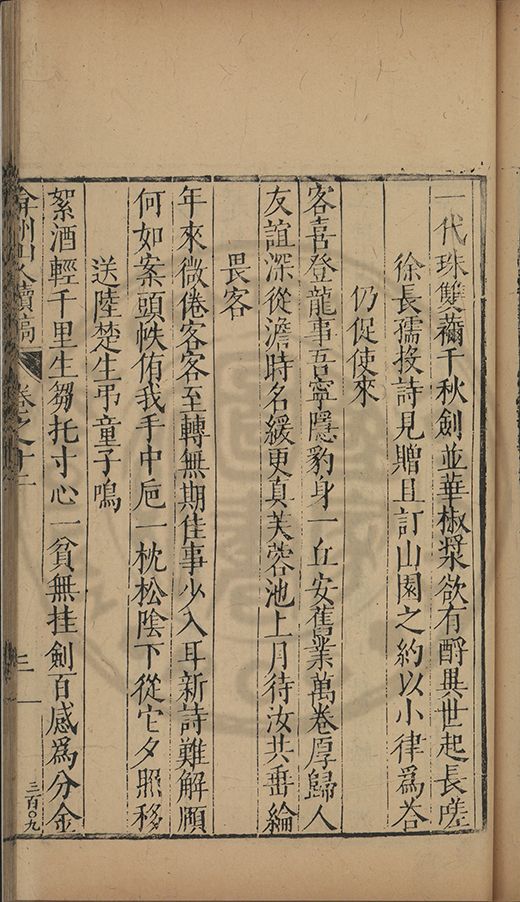 一代珠雙襧千秋劍並華椒漿欲有酹與世起長嗟
徐長孺投詩見贈且訂山園之約以小律爲荅
仍促使來
客喜登龍事吾寧隱豹身一丘安舊業萬卷厚歸人
友誼深從澹時名緩更真芙蓉池上月待汝共垂綸
畏客
年來微倦客客至轉無期佳事少入耳新詩難解頤
何如案頭帙侑我手中巵一枕松陰下從它夕照移
送陸楚生弔童子鳴
絮酒輕千里生芻托寸心一貧無挂劍百感爲分金
弇州山人續稿
卷之十二
三百〇九